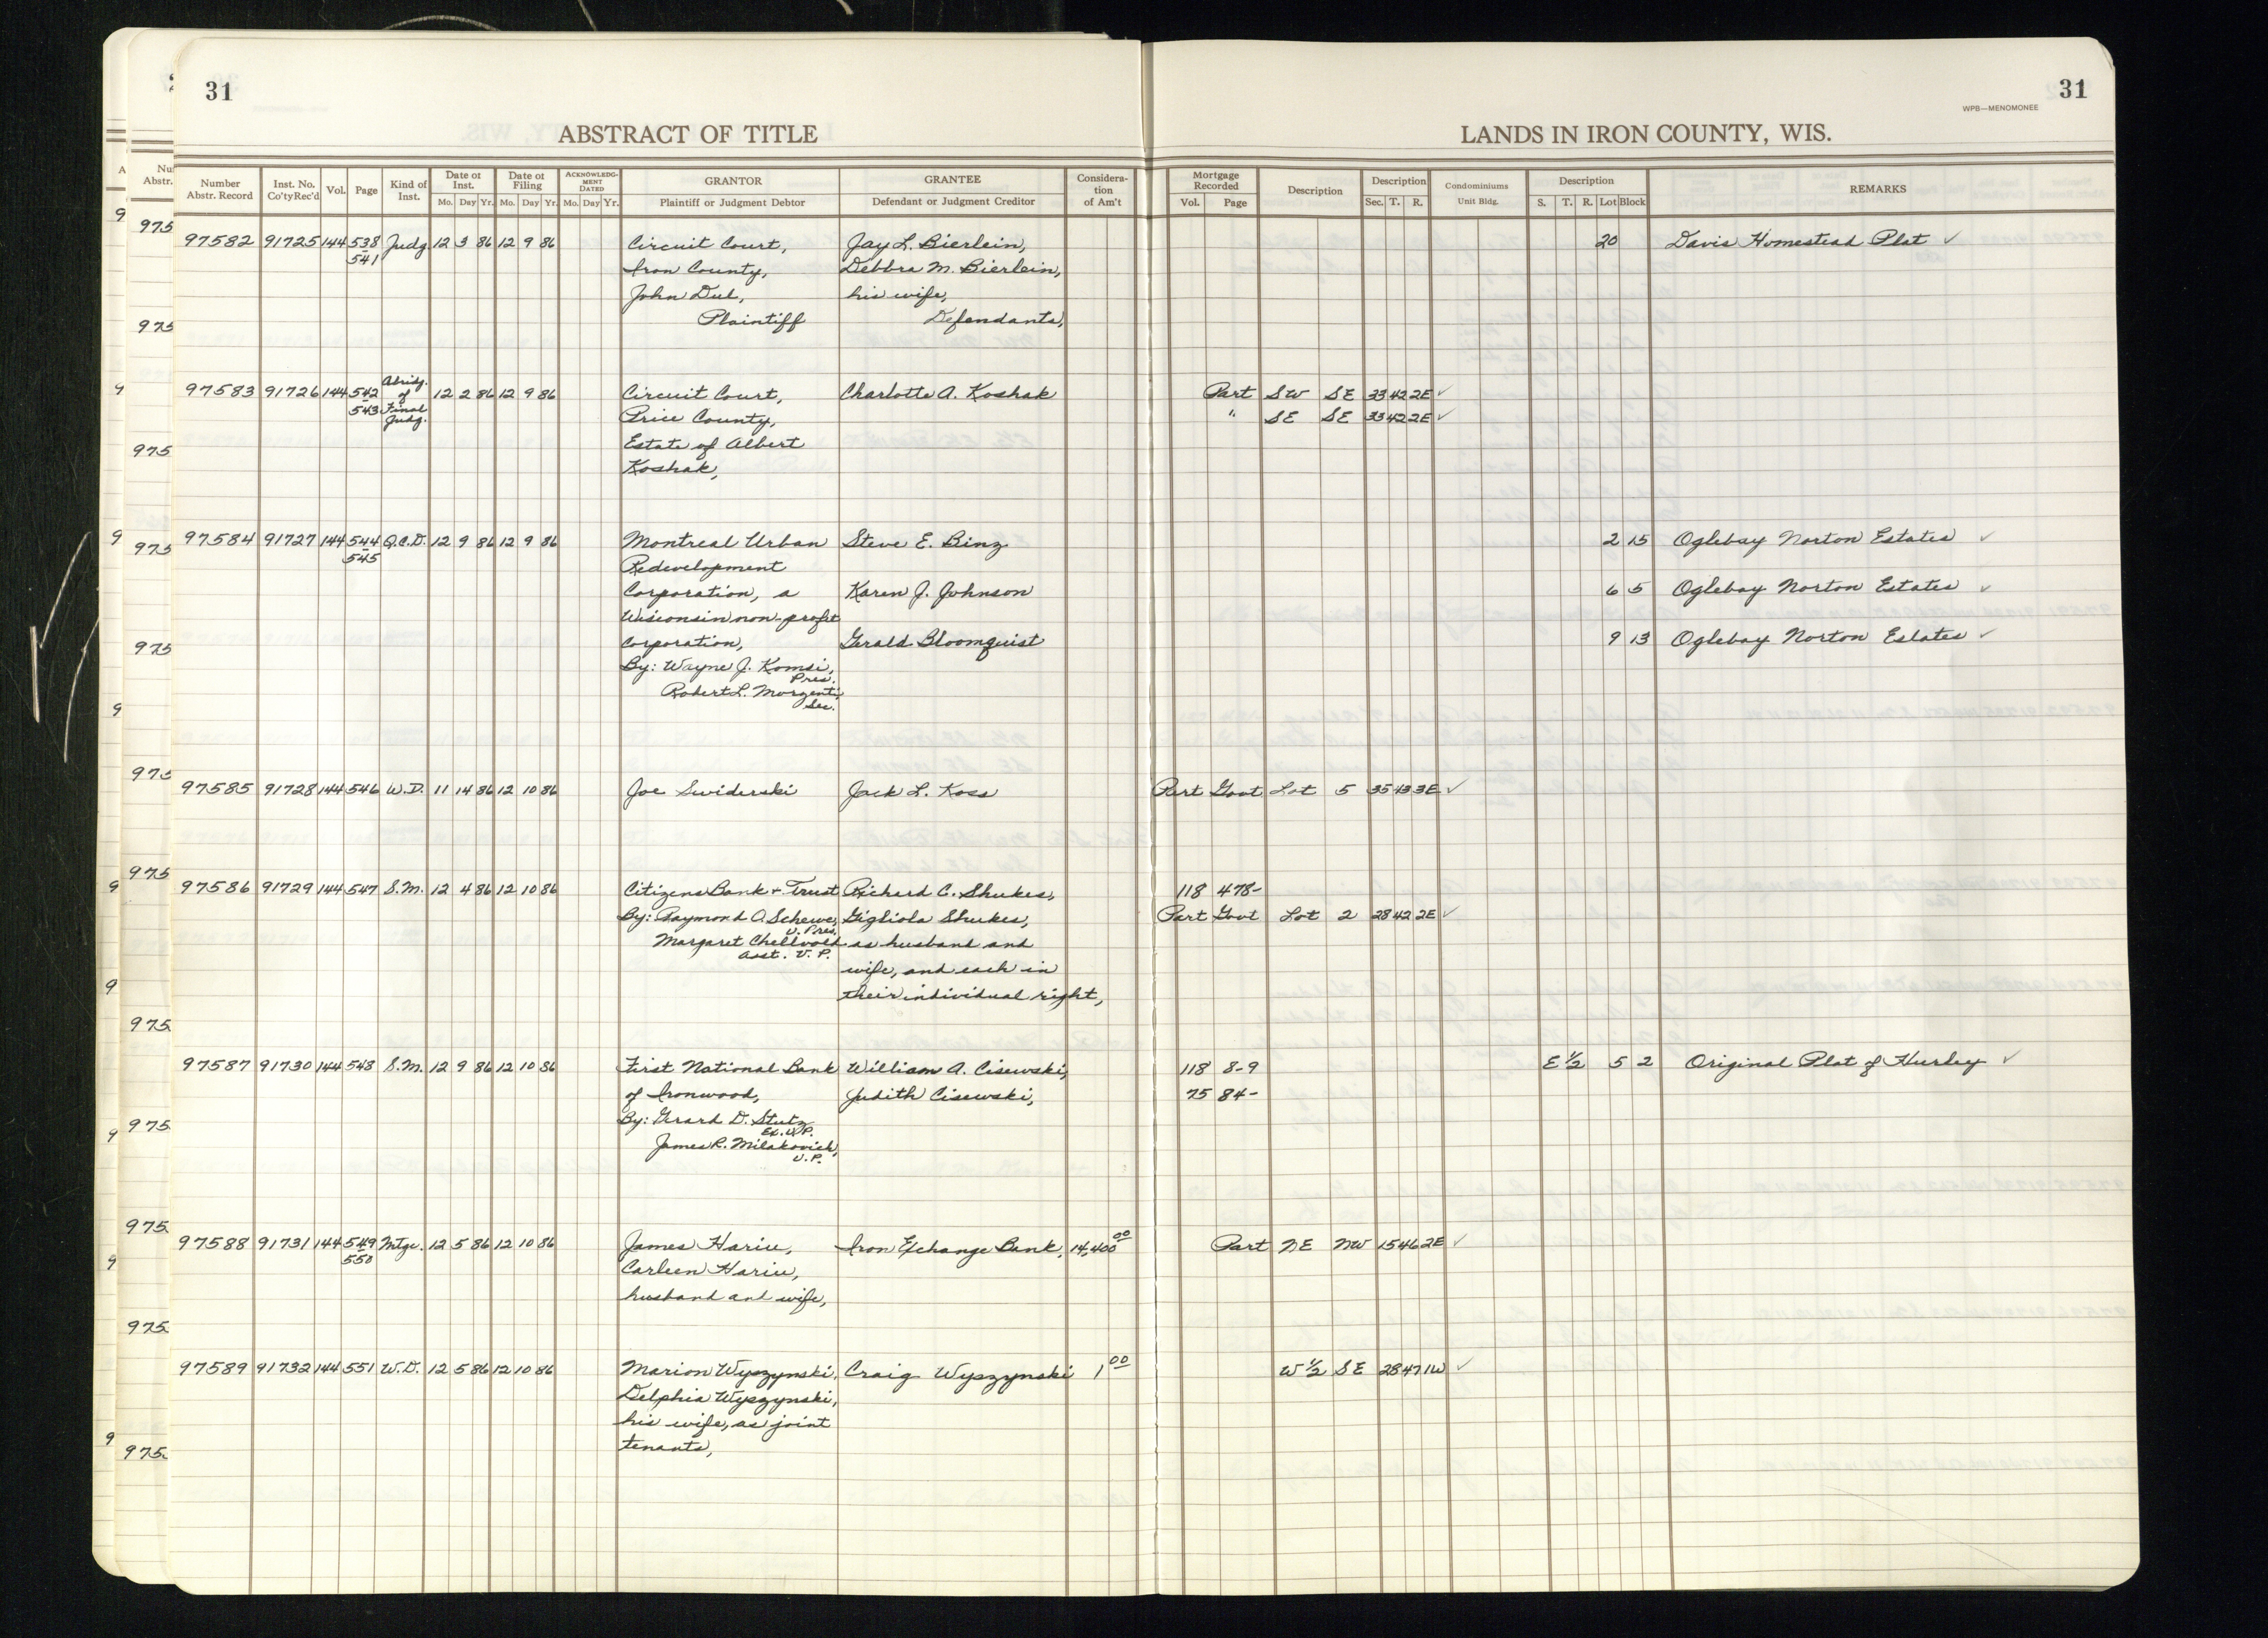 31
31
WPB—MENOMONEE
ABSTRACT OF TITLE
LANDS IN IRON COUNTY, WIS.
Number Abstr. Record Inst. No. Co'ty Rec'd Vol. Page Kind of Inst. Date of Inst. Mo. Day Yr. Date of Filing Mo. Day Yr. ACKNOWLEDGMENT DATED Mo. Day Yr. GRANTOR Plaintiff or Judgment Debtor GRANTEE Defendant or Judgment Creditor Consideration of Am't Mortgage Recorded Vol. Page Description Description Sec. T. R. Condominiums Unit Bldg. Description S. T. R. Lot Block REMARKS
97582 91725 144 538 Judg. 12 3 86 12 9 86 Circuit Court, Jay L. Bierlein, 20 Davis Homestead Plat ✓
541 Iron County, Debbra M. Bierlein,
John Dul, his wife,
Plaintiff Defendants,
97583 91726 144 542 Abridg. of 12 2 86 12 9 86 Circuit Court, Charlotte A. Koshak Part SW SE 33 42 2E ✓
543 Final Judg. Price County, " SE SE 33 42 2E ✓
Estate of Albert
Koshak,
97584 91727 144 544 Q.C.D. 12 9 86 12 9 86 Montreal Urban Steve E. Binz 2 15 Oglebay Norton Estates ✓
545 Redevelopment
Corporation, a Karen J. Johnson 6 5 Oglebay Norton Estates ✓
Wisconsin non-profit
corporation, Gerald Bloomquist 9 13 Oglebay Norton Estates ✓
By: Wayne J. Komsi,
Pres.
Robert L. Morzenti,
Sec.
97585 91728 144 546 W.D. 11 14 86 12 10 86 Joe Swiderski Jack L. Koss Part Govt Lot 5 35 43 3E ✓
97586 91729 144 547 S.M. 12 4 86 12 10 86 Citizens Bank + Trust Richard C. Shukes, 118 478-
By: Raymond O. Schewe, Gigliola Shukes, Part Govt Lot 2 28 42 2E ✓
V. Pres.
Margaret Chellvold as husband and
Asst. V. P.
wife, and each in
their individual right,
97587 91730 144 548 S.M. 12 9 86 12 10 86 First National Bank William A. Cisewski, 118 8-9 E 1/2 5 2 Original Plat of Hurley ✓
of Ironwood, Judith Cisewski, 75 84-
By: Gerard D. Stutz
Ex. V.P.
James R. Milakovich,
V.P.
97588 91731 144 549 Mtge. 12 5 86 12 10 86 James Hariu, Iron Exchange Bank, 14,400 00 Part NE NW 15 46 2E ✓
550 Carleen Hariu,
husband and wife,
97589 91732 144 551 W.D. 12 5 86 12 10 86 Marion Wyszynski, Craig Wyszynski 1 00 W 1/2 SE 28 47 1W ✓
Delphia Wyszynski,
his wife, as joint
tenants,